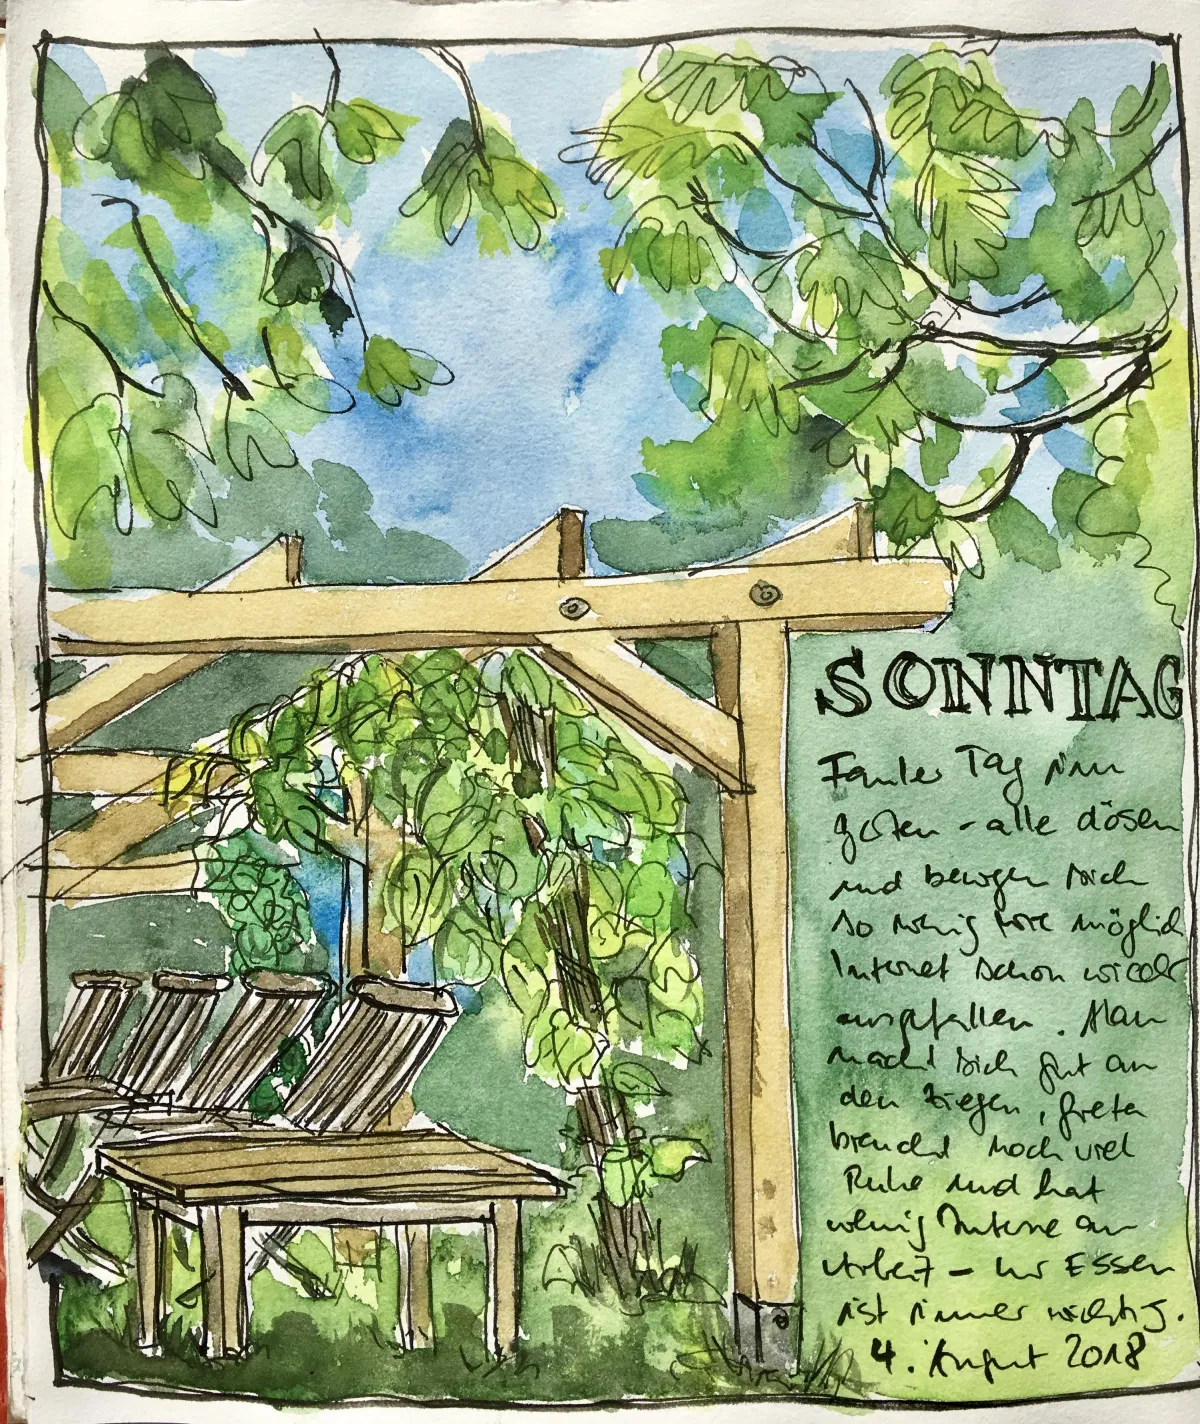 SONNTAG
Fauler Tag im
Garten - alle dösen
und bewegen sich
so wenig wie möglich
Internet schon wieder
ausgefallen. Man
macht sich gut an
den Ziegen, Greta
braucht noch viel
Ruhe und hat
wenig Interesse an
Arbeit - ihr Essen
ist immer wichtig.
4. August 2018